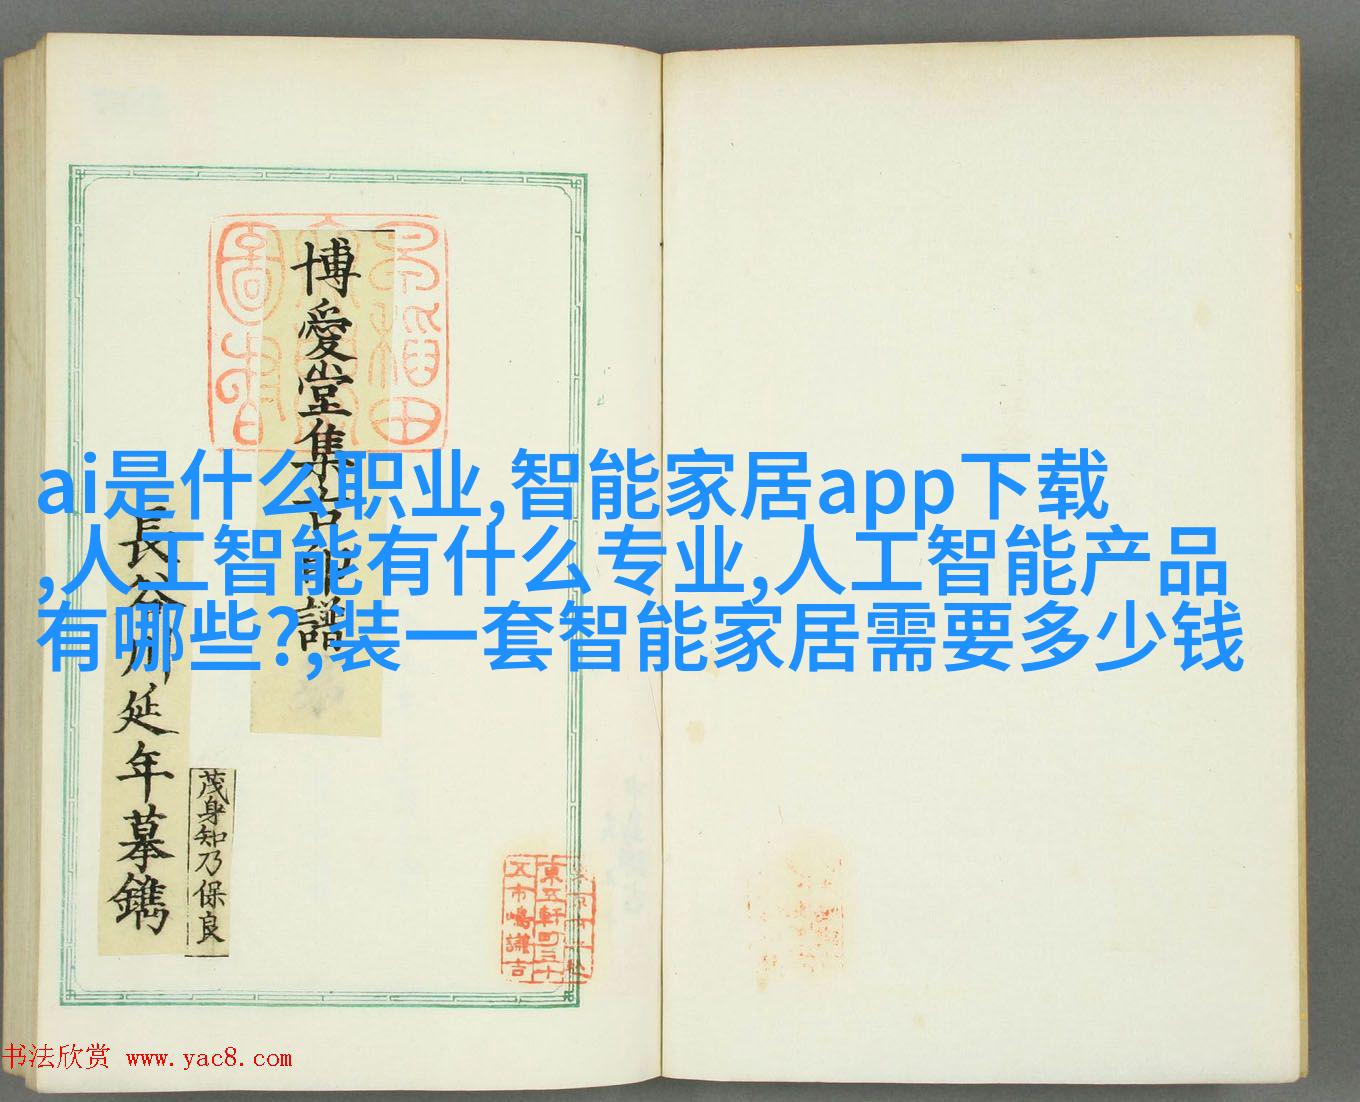 博愛堂集古印譜
長谷川延年摹鐫
茂身知乃保良
ai是什么职业,智能家居app下载
,人工智能有什么专业,人工智能产品
有哪些?,装一套智能家居需要多少钱
東五軒町三十
五市嶋謙吉
书法欣赏 www.yac8.com